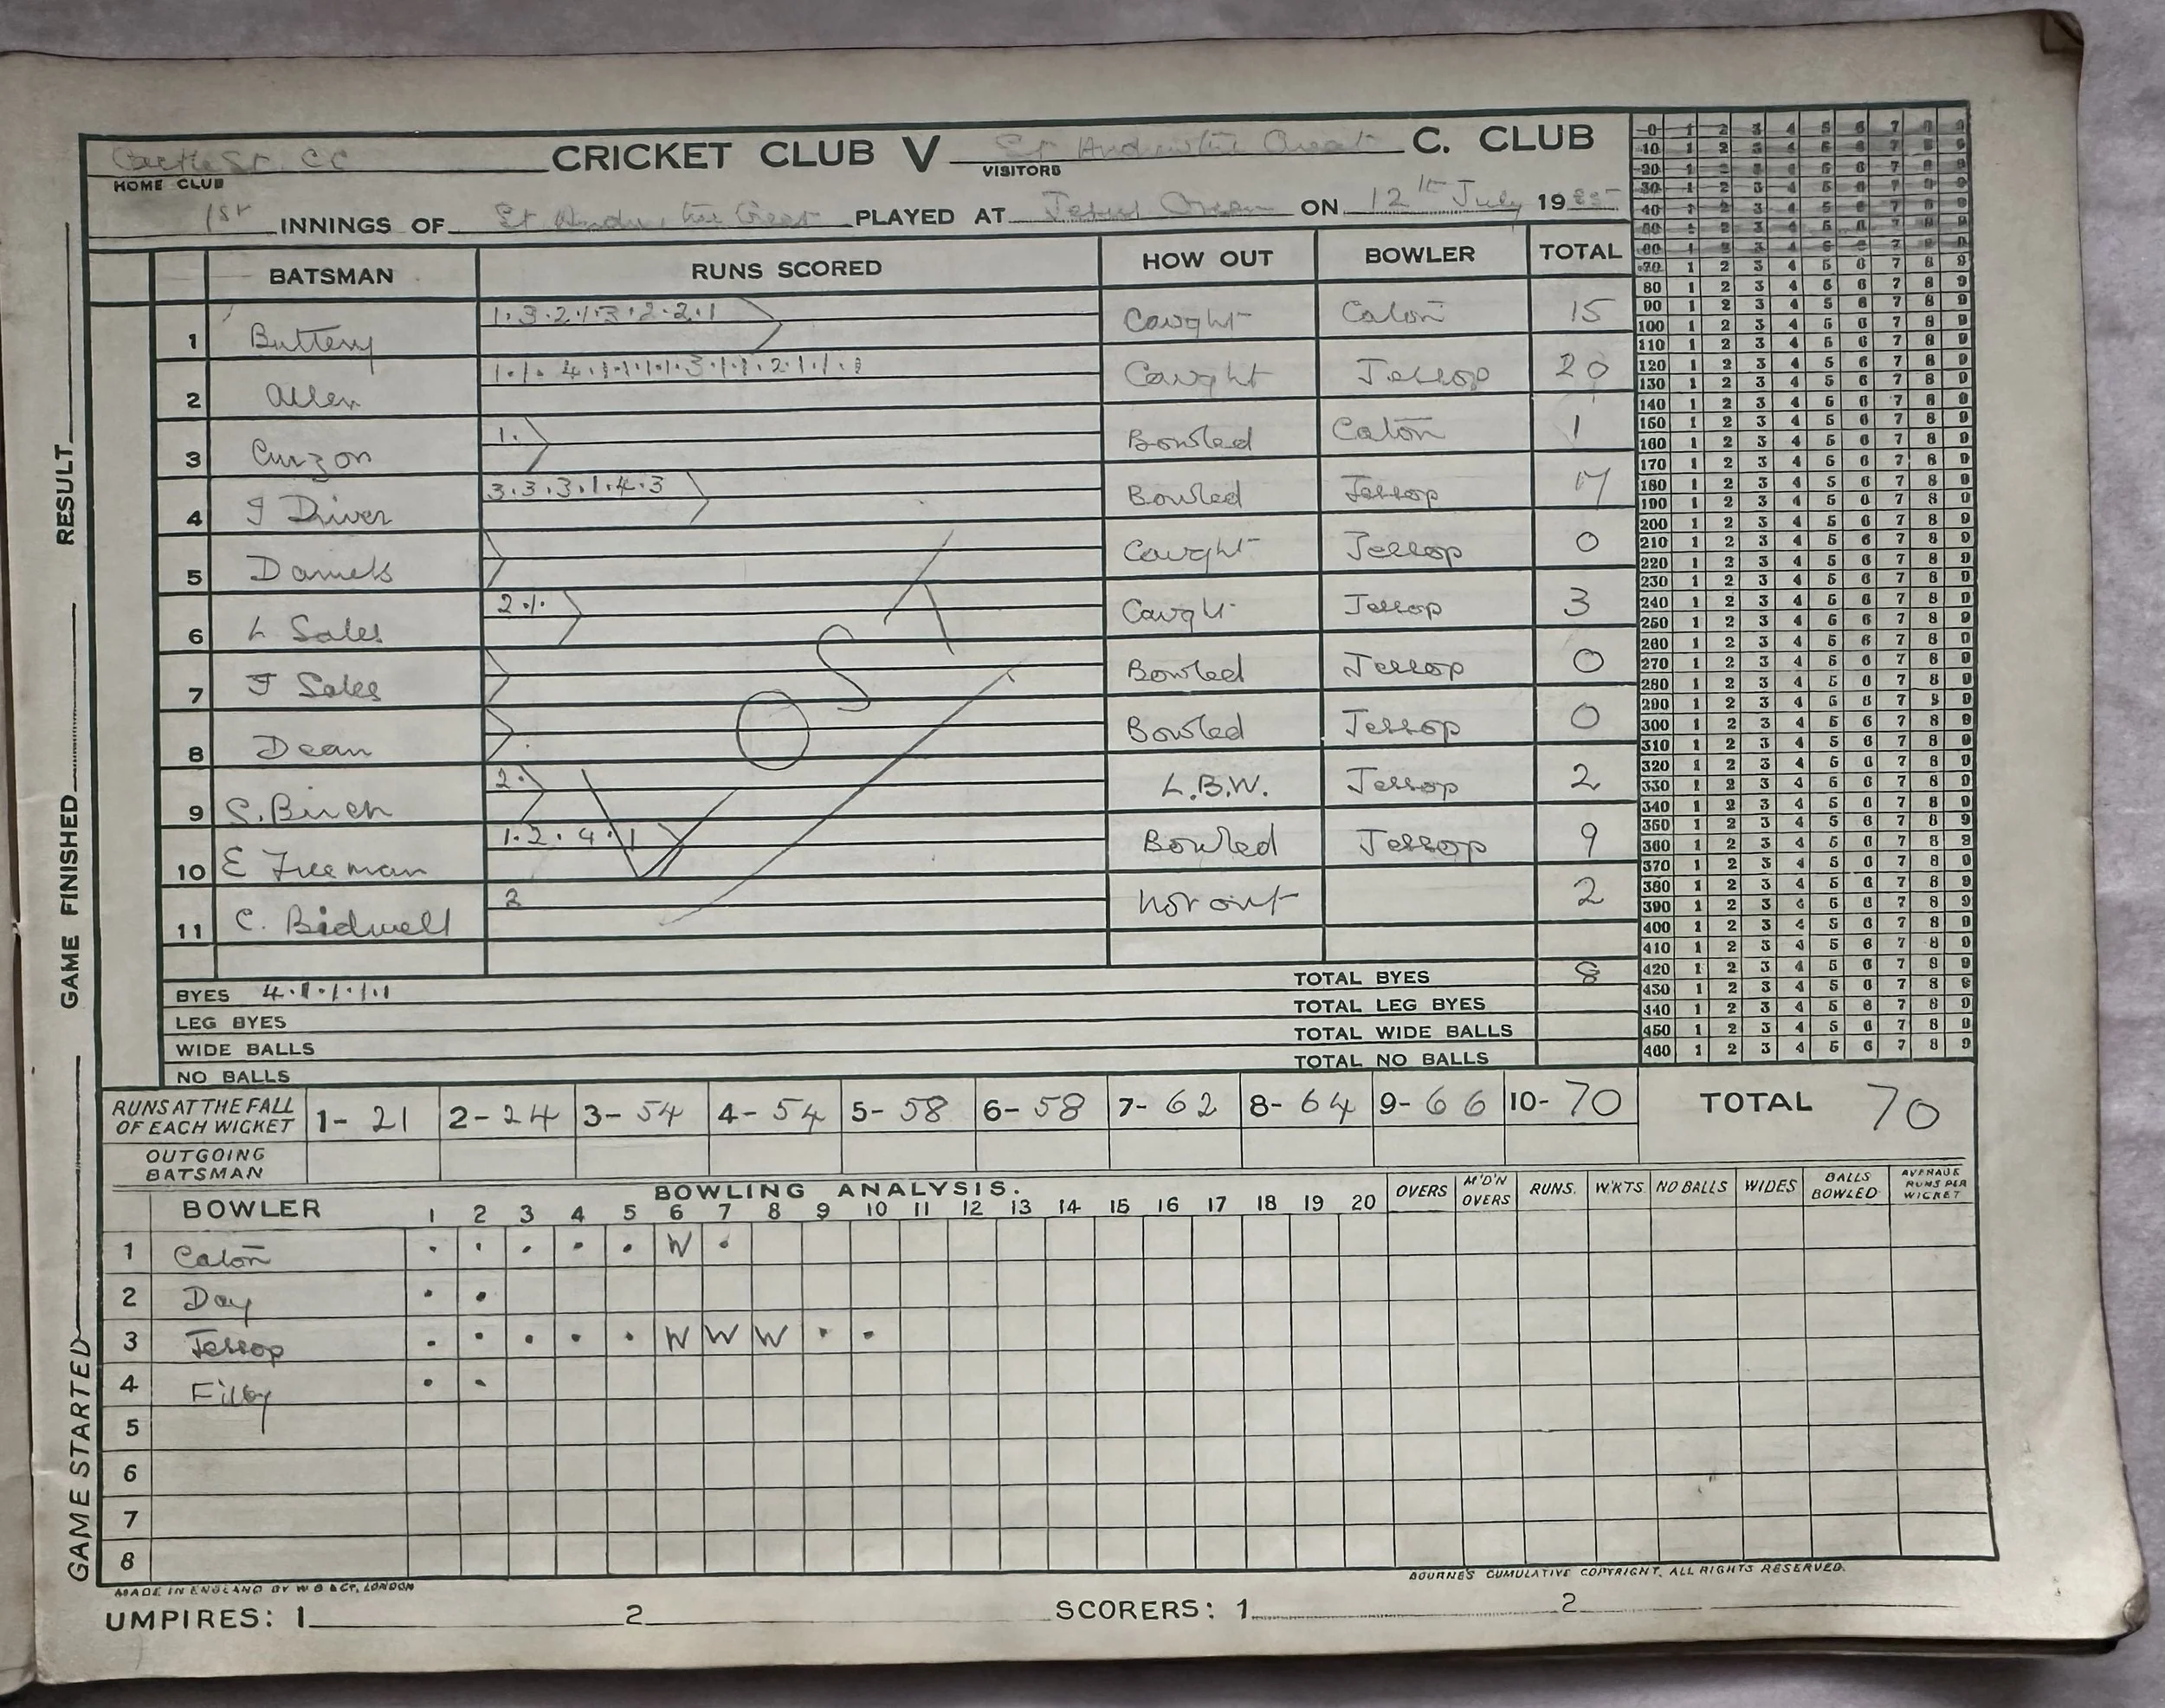 Castle St. CC CRICKET CLUB V St Andrew the Great C. CLUB
HOME CLUB VISITORS
1st INNINGS OF St Andrew the Great PLAYED AT Jesus Green ON 12th July 19
BATSMAN RUNS SCORED HOW OUT BOWLER TOTAL
1 Buttery 1.3.2.1.3.2.2.1 Caught Caton 15
2 Allen 1.1.4.1.1.1.1.1.3.1.1.2.1.1.1 Caught Jessop 20
3 Curzon 1. Bowled Caton 1
4 J Driver 3.3.3.1.4.3 Bowled Jessop 17
5 Daniels Caught Jessop 0
6 L Sales 2.1. Caught Jessop 3
7 F Sales Bowled Jessop 0
8 Dean Bowled Jessop 0
9 S. Birch 2. L.B.W. Jessop 2
10 E Freeman 1.2.4.1 Bowled Jessop 9
11 C. Bidwell 2 not out 2
LOST
BYES 4.1.1.1.1 TOTAL BYES 8
LEG BYES TOTAL LEG BYES
WIDE BALLS TOTAL WIDE BALLS
NO BALLS TOTAL NO BALLS
RUNS AT THE FALL OF EACH WICKET 1- 21 2- 24 3- 54 4- 54 5- 58 6- 58 7- 62 8- 64 9- 66 10- 70 TOTAL 70
OUTGOING BATSMAN
BOWLING ANALYSIS.
BOWLER 1 2 3 4 5 6 7 8 9 10 11 12 13 14 15 16 17 18 19 20 OVERS M'D'N OVERS RUNS. W'KTS NO BALLS WIDES BALLS BOWLED AVERAGE RUNS PER WICKET
1 Caton . . . . . W .
2 Day . .
3 Jessop . . . . . W W W . .
4 Filby . .
5
6
7
8
MADE IN ENGLAND BY W B & CO, LONDON
BOURNE'S CUMULATIVE COPYRIGHT. ALL RIGHTS RESERVED.
UMPIRES: 1 2 SCORERS: 1 2
GAME STARTED GAME FINISHED RESULT
0 1 2 3 4 5 6 7 8 9
10 1 2 3 4 5 6 7 8 9
20 1 2 3 4 5 6 7 8 9
30 1 2 3 4 5 6 7 8 9
40 1 2 3 4 5 6 7 8 9
50 1 2 3 4 5 6 7 8 9
60 1 2 3 4 5 6 7 8 9
70 1 2 3 4 5 6 7 8 9
80 1 2 3 4 5 6 7 8 9
90 1 2 3 4 5 6 7 8 9
100 1 2 3 4 5 6 7 8 9
110 1 2 3 4 5 6 7 8 9
120 1 2 3 4 5 6 7 8 9
130 1 2 3 4 5 6 7 8 9
140 1 2 3 4 5 6 7 8 9
150 1 2 3 4 5 6 7 8 9
160 1 2 3 4 5 6 7 8 9
170 1 2 3 4 5 6 7 8 9
180 1 2 3 4 5 6 7 8 9
190 1 2 3 4 5 6 7 8 9
200 1 2 3 4 5 6 7 8 9
210 1 2 3 4 5 6 7 8 9
220 1 2 3 4 5 6 7 8 9
230 1 2 3 4 5 6 7 8 9
240 1 2 3 4 5 6 7 8 9
250 1 2 3 4 5 6 7 8 9
260 1 2 3 4 5 6 7 8 9
270 1 2 3 4 5 6 7 8 9
280 1 2 3 4 5 6 7 8 9
290 1 2 3 4 5 6 7 8 9
300 1 2 3 4 5 6 7 8 9
310 1 2 3 4 5 6 7 8 9
320 1 2 3 4 5 6 7 8 9
330 1 2 3 4 5 6 7 8 9
340 1 2 3 4 5 6 7 8 9
350 1 2 3 4 5 6 7 8 9
360 1 2 3 4 5 6 7 8 9
370 1 2 3 4 5 6 7 8 9
380 1 2 3 4 5 6 7 8 9
390 1 2 3 4 5 6 7 8 9
400 1 2 3 4 5 6 7 8 9
410 1 2 3 4 5 6 7 8 9
420 1 2 3 4 5 6 7 8 9
430 1 2 3 4 5 6 7 8 9
440 1 2 3 4 5 6 7 8 9
450 1 2 3 4 5 6 7 8 9
460 1 2 3 4 5 6 7 8 9